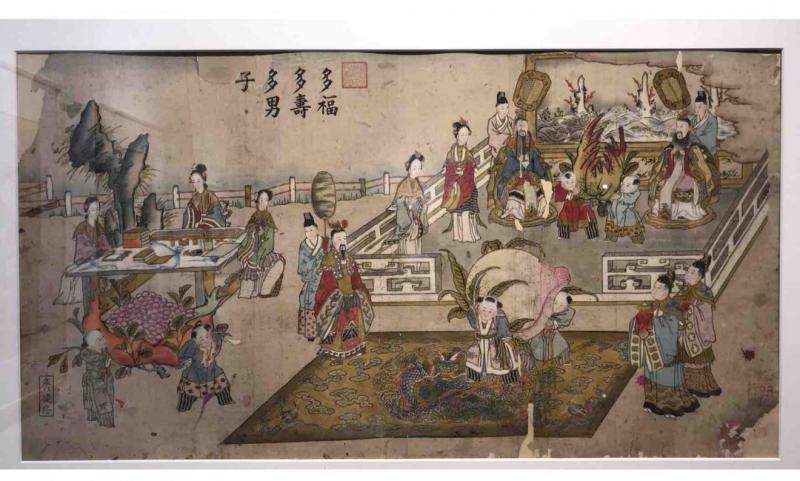 多福
多壽
多男
子